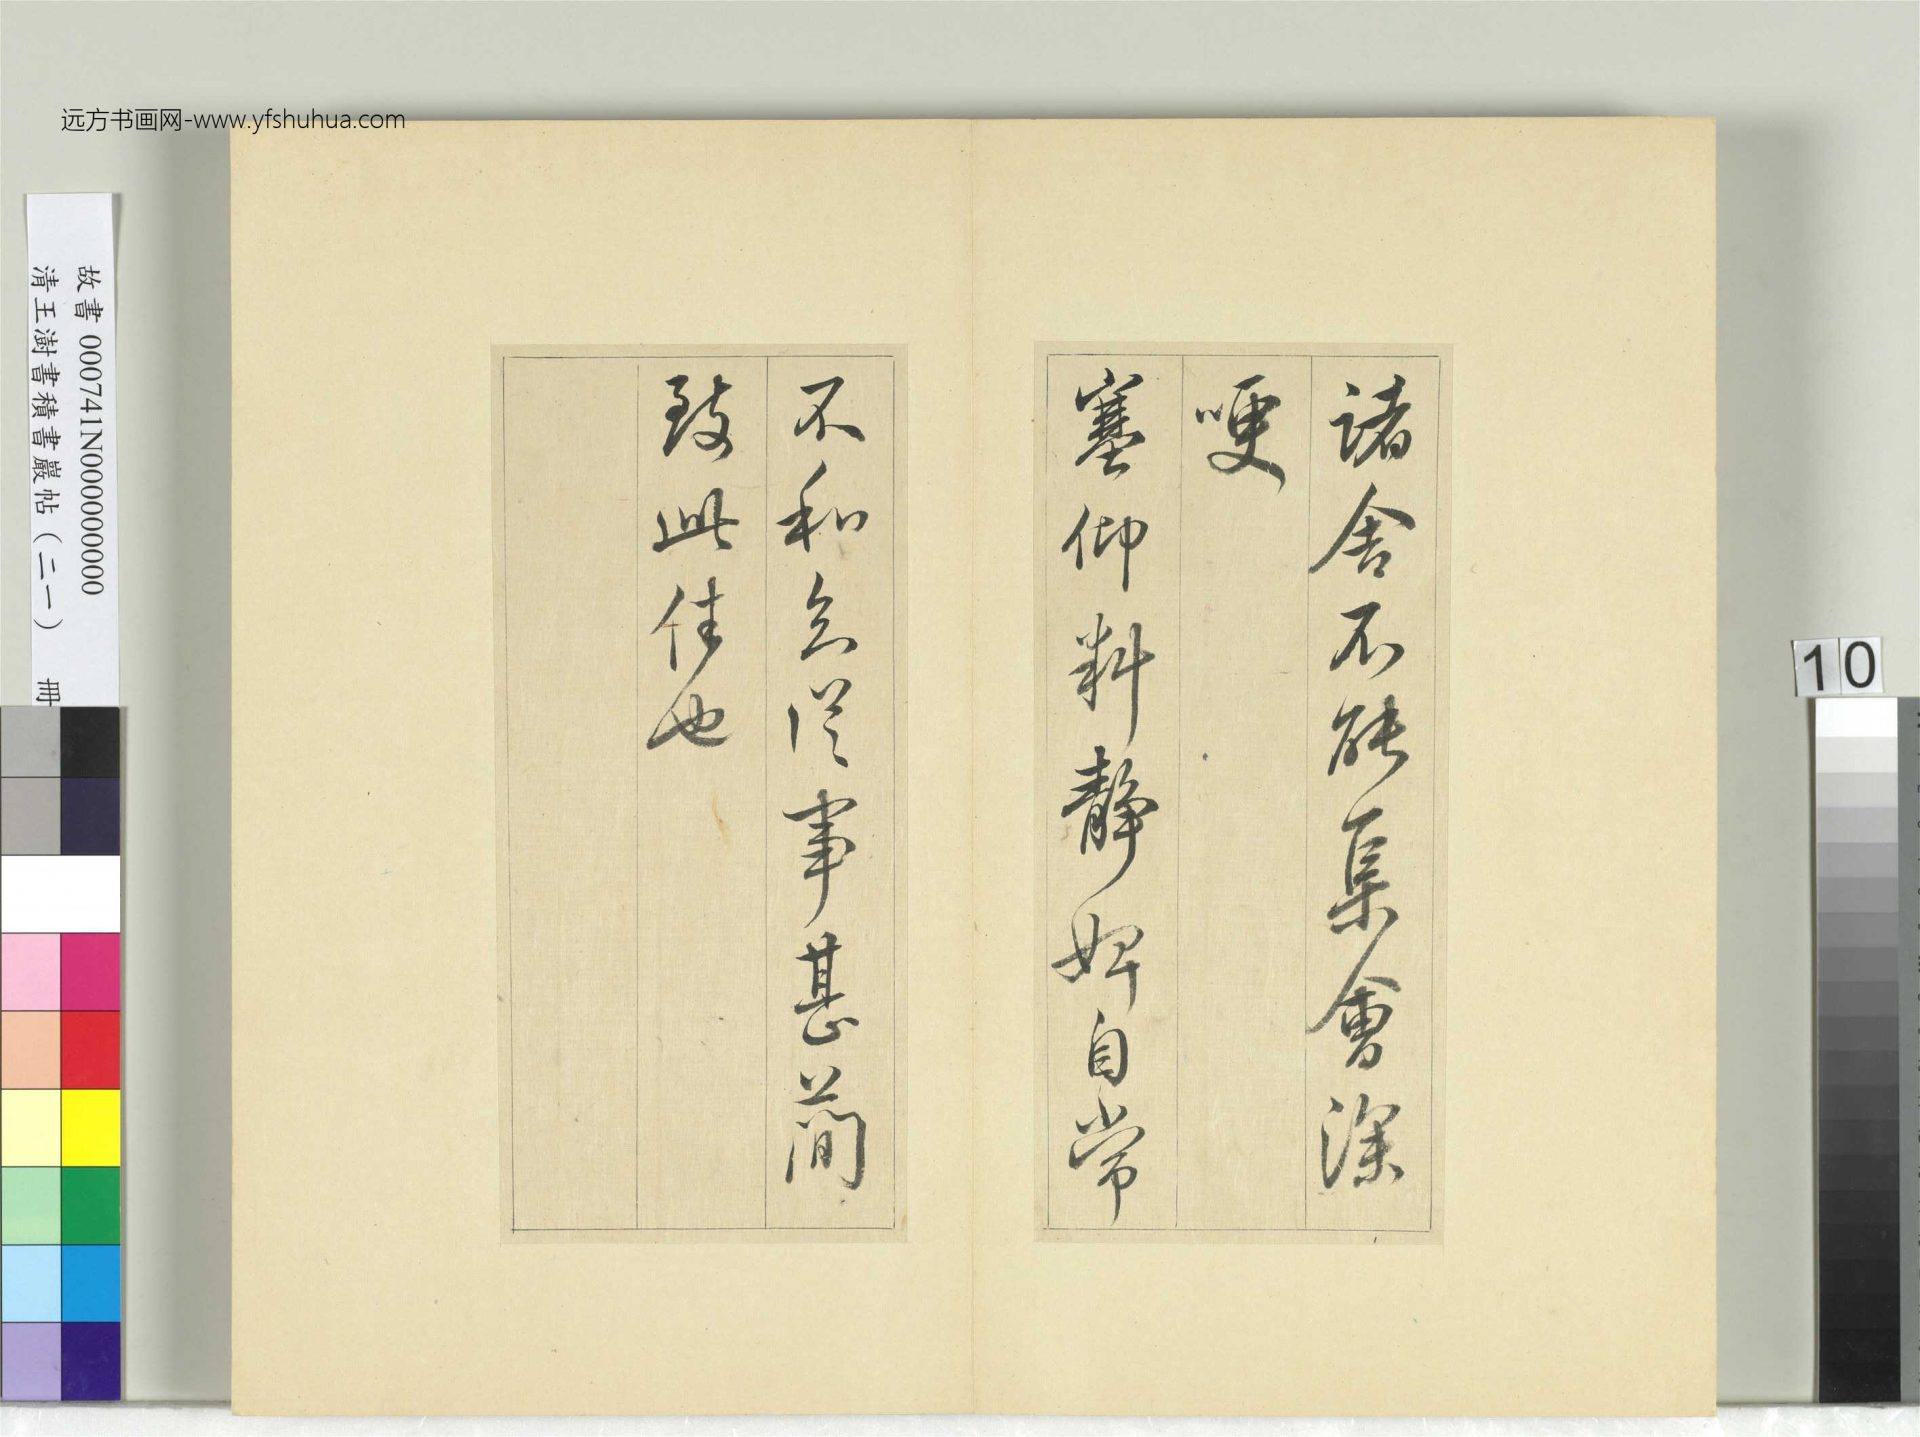 远方书画网-www.yfshuhua.com
故書 000741N000000000
清王澍書積書巖帖（二一） 冊
10
諸舍不能集會深
哽
塞仰料靜婢自常
不和念從事甚簡
致此佳也